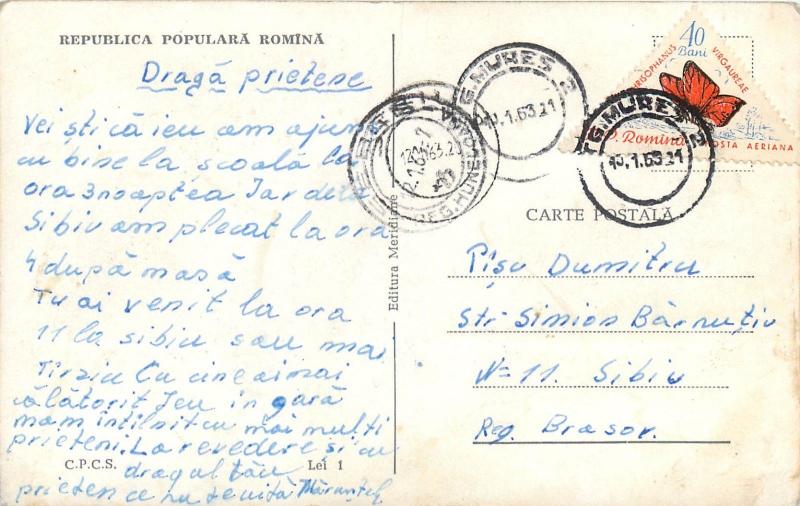 REPUBLICA POPULARĂ ROMÎNĂ
Dragă prietene
Vei ști că ieu am ajuns
cu bine la școală la
ora 3 noaptea Iar dela
Sibiu am plecat la ora
4 după masă
Tu ai venit la ora
11 la sibiu sau mai
Tirziu Cu cine ai mai
călătorit Ieu in gară
mam întîlnit cu mai mulți
prieteni. La revedere și cu
dragul tău
prieten ce nu te uită
C.P.C.S. Lei 1
Editura Meridiane
TG. MUREȘ 2
10.1.63.21
TG. MUREȘ 2
10.1.63.21
REG. HUNEDOARA
40
Bani
CHRISOPHANUS VIRGAUREAE
R.P. Romînă
POSTA AERIANA
CARTE POȘTALĂ
Pișu Dumitru
Str Simion Bărnuțiu
No 11. Sibiu
Reg. Brasov.